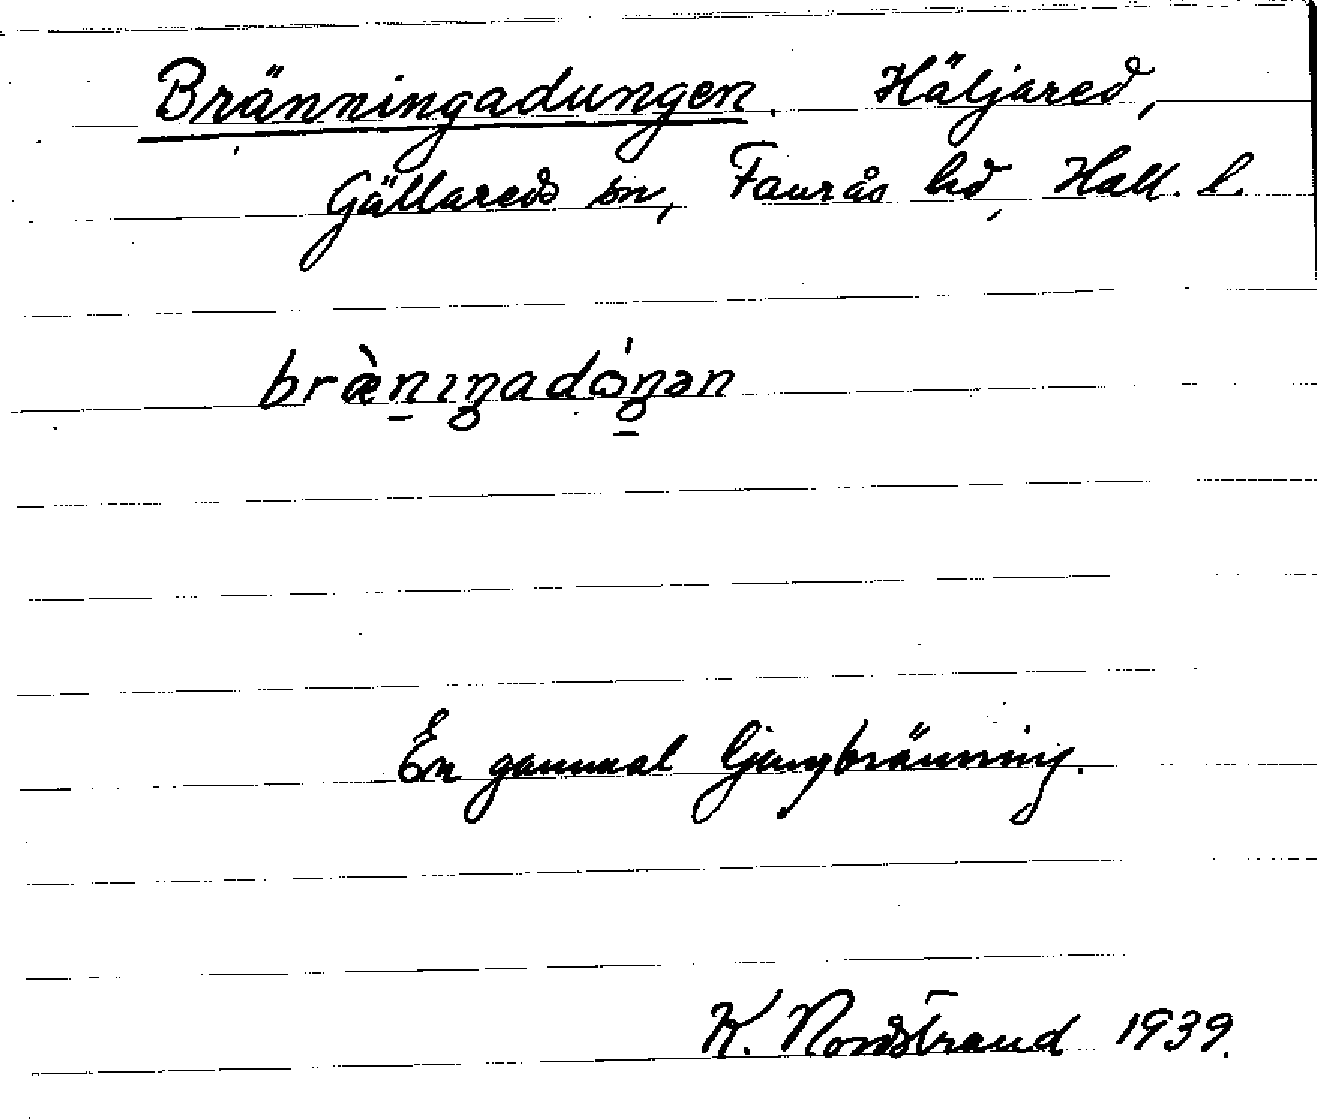 Bränningadungen. Häljared,
Gällareds sn, Faurås hd, Hall. l.
bræ̀n̠ıŋadóŋ̠ən
En gammal ljungbränning.
K. Nordstrand 1939.